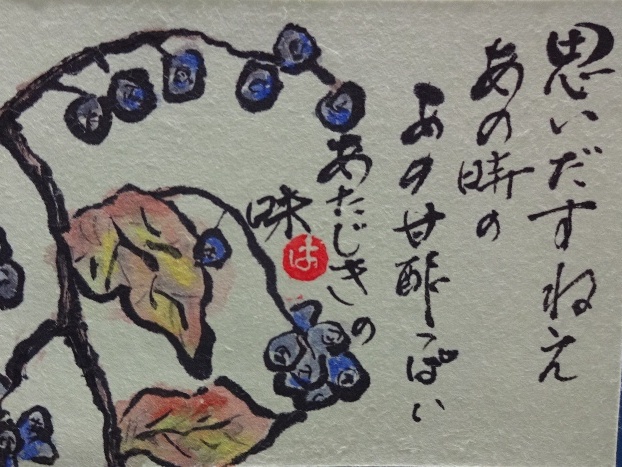 思いだすねえ
あの時の
あの甘酢っぽい
あたじきの
味
は